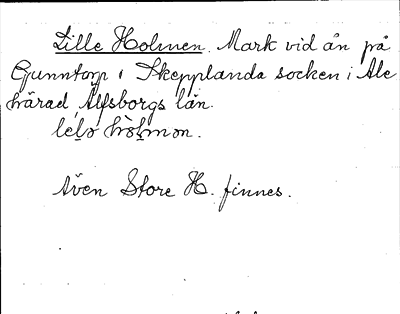 Lille Holmen. Mark vid ån på
Gunntorp i Skepplanda socken i Ale
härad, Älfsborgs län.
lelɔ hòlmon.
Även Store H. finnes.